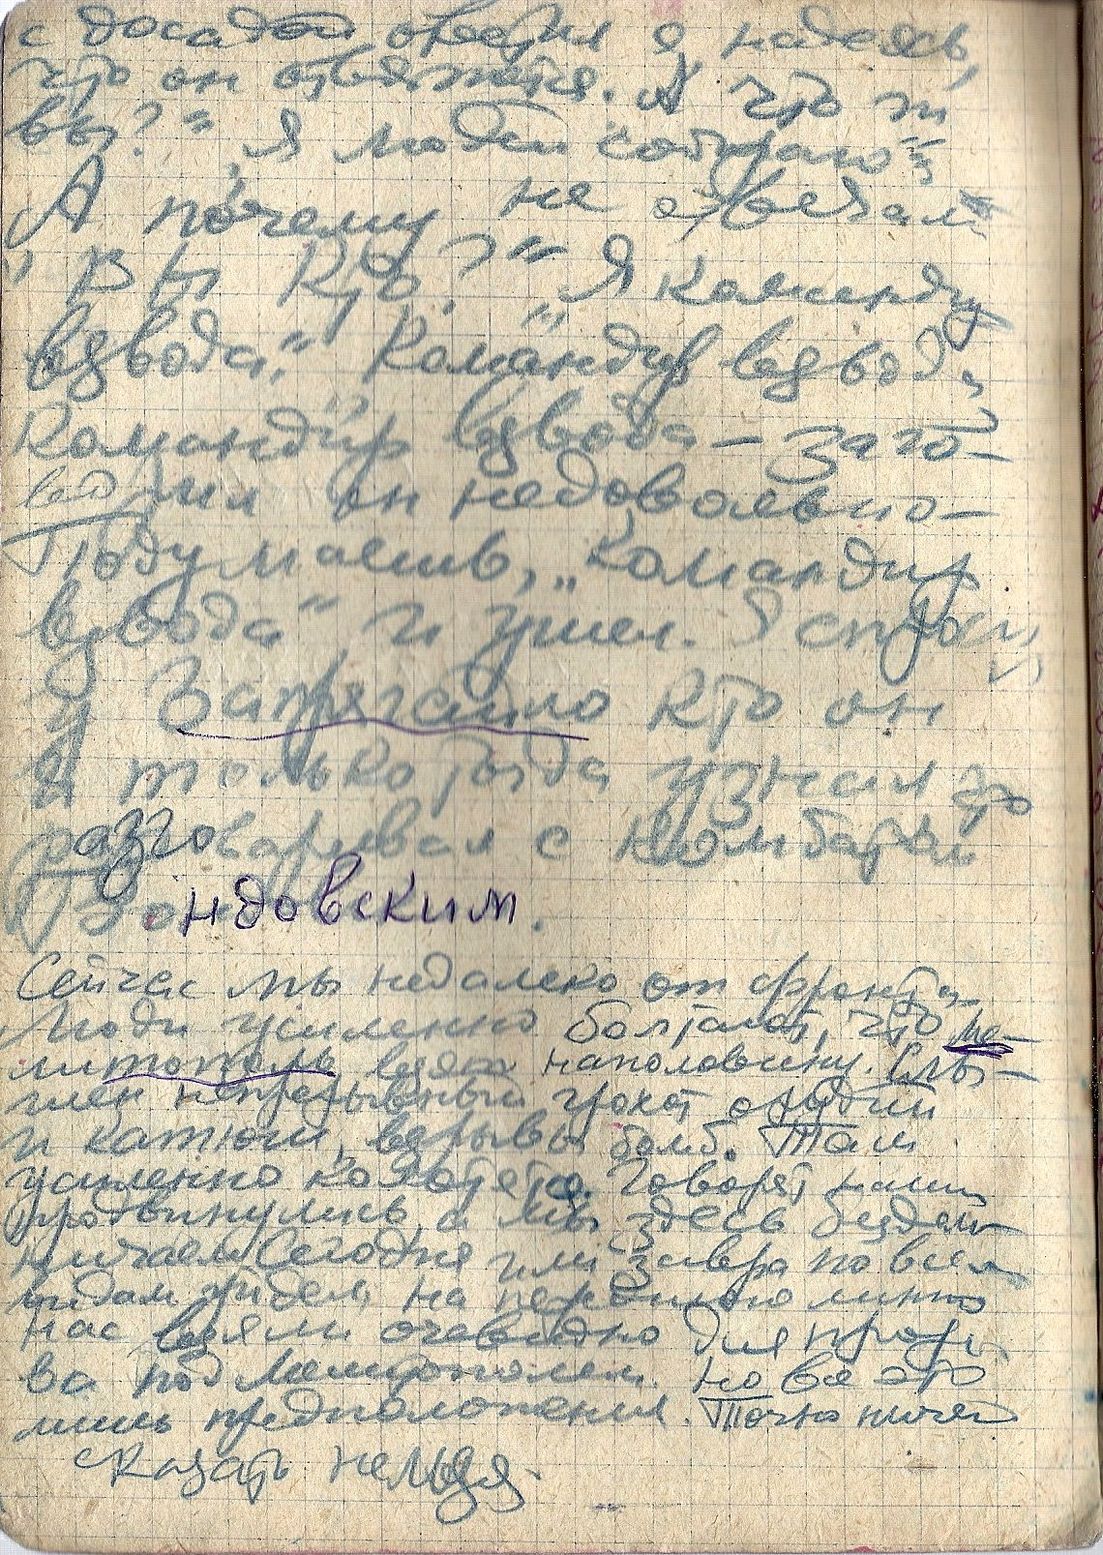 с досадой ответил я надеясь,
что он отвяжется. "А что ж
вы?" "Я людей собираю"
"А почему не отвечали
"Вы кто?" "Я командир
взвода." "Командир взвода,
командир взвода — заго-
ворил он недовольно —
Подумаешь, "командир
взвода" и ушел. Я спросил
у Запрягайло кто он
и только тогда узнал что
разговаривал с комбатом
Рондовским.
Сейчас мы недалеко от фронта.
Люди усиленно болтают, что Ме-
литополь взят наполовину. Слы-
шен непрерывный грохот орудий
и катюш, взрывы бомб. Там
усиленно
Говорят наши
продвинулись, а мы здесь бездель-
ничаем. Сегодня или завтра по всем
видам выйдем на переднюю линию
нас взяли очевидно для проры-
ва под Мелитополем. Но все это
лишь предположения. Точно ничего
сказать нельзя.